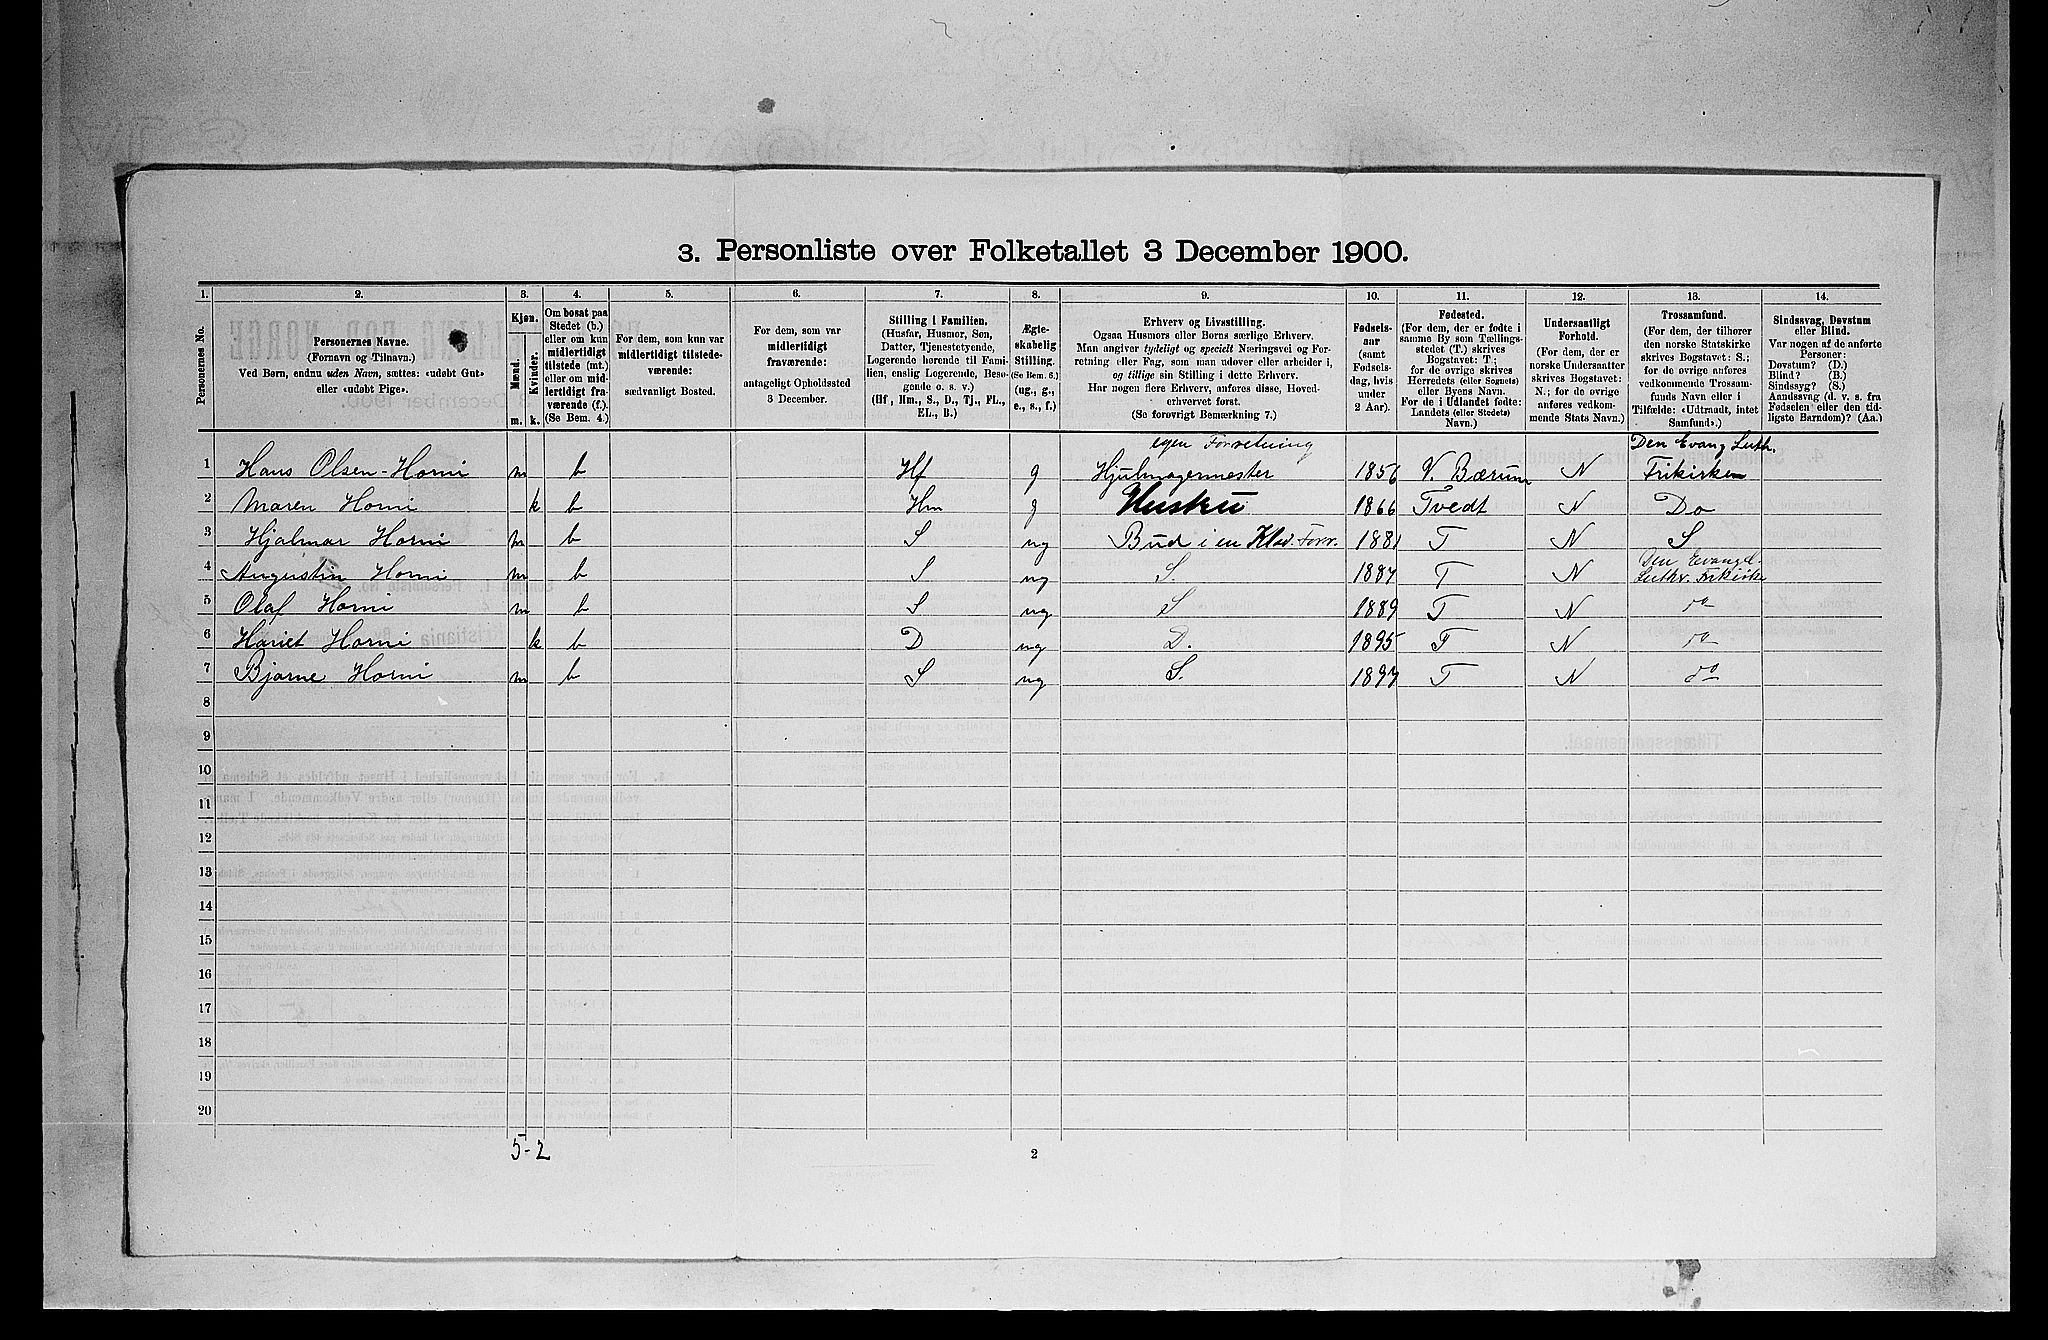 3. Personliste over Folketallet 3 December 1900.
1. 2. 3. 4. 5. 6. 7. 8. 9. 10. 11. 12. 13. 14.
Personernes No.
Personernes Navne.
(Fornavn og Tilnavn.)
Ved Børn, endnu uden Navn, sættes: «udøbt Gut»
eller «udøbt Pige».
Kjøn.
Mænd.
Kvinder.
m. k.
Om bosat paa
Stedet (b.)
eller om kun
midlertidigt
tilstede (mt.)
eller om mid-
lertidigt fra-
værende (f.).
(Se Bem. 4.)
For dem, som kun var
midlertidigt tilstede-
værende:
sædvanligt Bosted.
For dem, som var
midlertidigt
fraværende:
antageligt Opholdssted
3 December.
Stilling i Familien.
(Husfar, Husmor, Søn,
Datter, Tjenestetyende,
Logerende hørende til Fami-
lien, enslig Logerende, Besø-
gende o. s. v.)
(Hf, Hm., S., D., Tj., FL.,
EL., B.)
Ægte-
skabelig
Stilling.
(Se Bem. 6.)
(ug., g.,
e., s., f.)
Erhverv og Livsstilling.
Ogsaa Husmors eller Børns særlige Erhverv.
Man angiver tydeligt og specielt Næringsvei og For-
retning eller Fag, som man udøver eller arbeider i,
og tillige sin Stilling i dette Erhverv.
Har nogen flere Erhverv, anføres disse, Hoved-
erhvervet først.
(Se forøvrigt Bemærkning 7.)
Fødsels-
aar
(samt
Fødsels-
dag, hvis
under
2 Aar).
Fødested.
(For dem, der er fødte i
samme By som Tællings-
stedet (T.) skrives
Bogstavet: T.;
for de øvrige skrives
Herredets (eller Sognets)
eller Byens Navn.
For de i Udlandet fødte:
Landets (eller Stedets)
Navn.)
Undersaatligt
Forhold.
(For dem, der er
norske Undersaatter
skrives Bogstavet:
N.; for de øvrige
anføres vedkom-
mende Stats Navn.)
Trossamfund.
(For dem, der tilhører
den norske Statskirke
skrives Bogstavet: S.;
for de øvrige anføres
vedkommende Trossam-
funds Navn eller i
Tilfælde: «Udtraadt, intet
Samfund».)
Sindssvag, Døvstum
eller Blind.
Var nogen af de anførte
Personer:
Døvstum? (D.)
Blind? (B.)
Sindssyg? (S.)
Aandssvag (d. v. s. fra
Fødselen eller den tid-
ligste Barndom)? (Aa.)
egen Forretning Den Evang Luth.
1 Hans Olsen-Horni m b Hf g Hjulmagermester 1856 V. Bærum N Frikirken
2 Maren Horni k b Hm g Hustru 1866 Tvedt N Do
3 Hjalmar Horni m b S ug Bud i en Klæd. Forr. 1881 T N S
Den Evangel.
4 Augustin Horni m b S ug S. 1887 T N Luthr. Frikirke
5 Olaf Horni m b S ug S 1889 T N do
6 Hariet Horni k b D ug D. 1895 T N do
7 Bjarne Horni m b S ug S. 1897 T N do
8
9
10
11
12
13
14
15
16
17
18
19
20
5-2
2